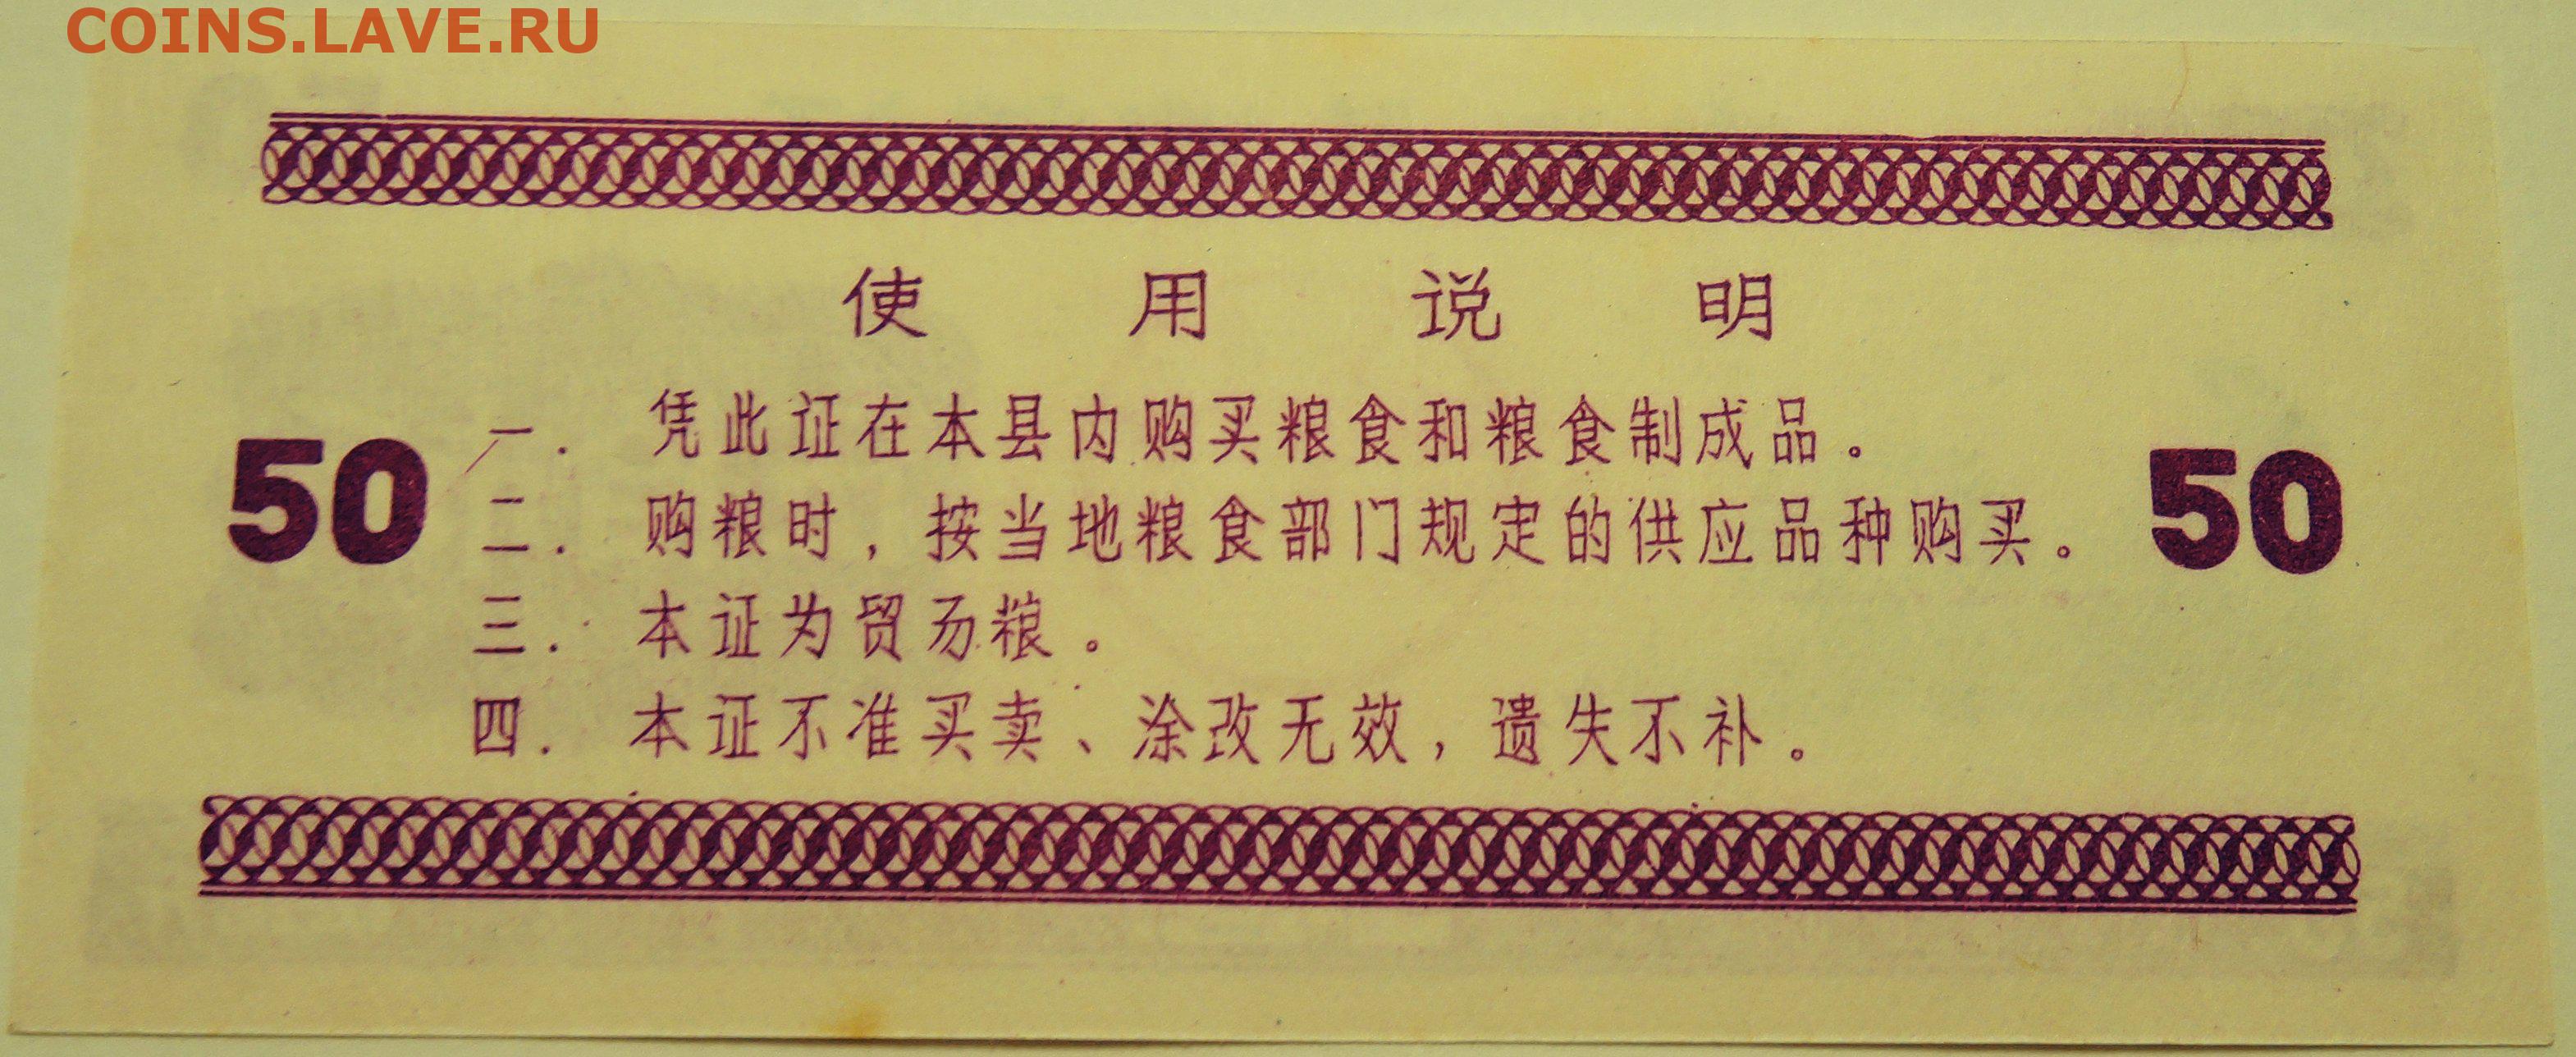 COINS.LAVE.RU
使用说明
50
一. 凭此证在本县内购买粮食和粮食制成品。
二. 购粮时，按当地粮食部门规定的供应品种购买。
三. 本证为贸易粮。
四. 本证不准买卖、涂改无效，遗失不补。
50